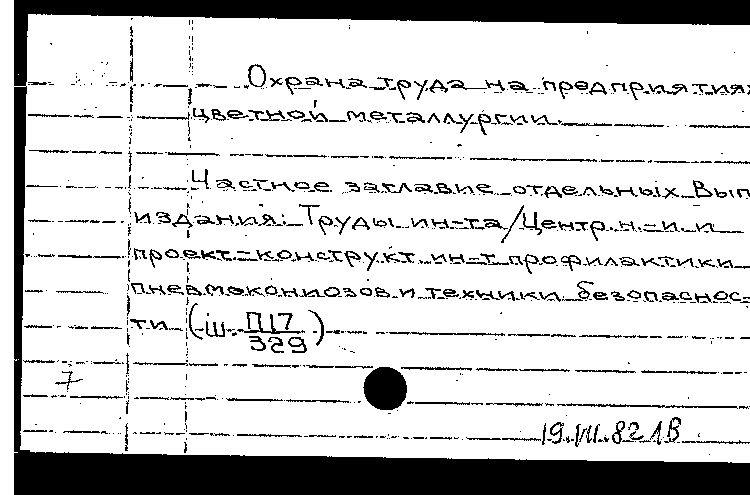 Охрана труда на предприятиях
цветной металлургии.
Частное заглавие отдельных вып.
издания: Труды ин-та/Центр.н.-и. и
проект.-конструкт. ин-т профилактики
пневмокониозов и техники безопаснос-
ти (ш. П17/329)
7
19.VII.82 ЛВ